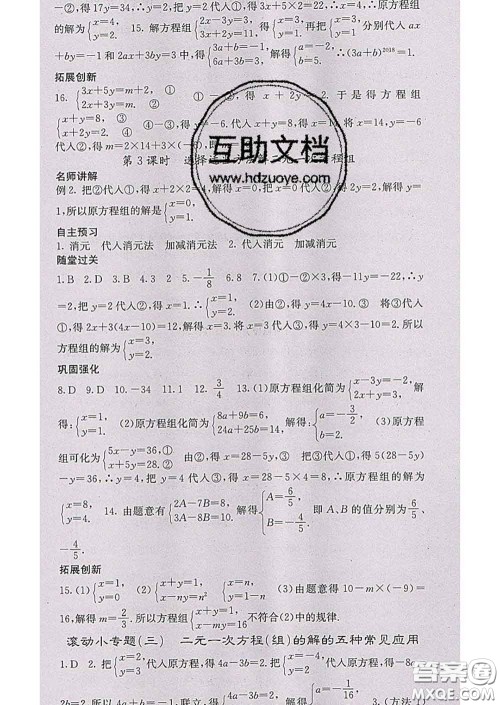 -②,得17y=34,∴y=2.把y=2代入①,得3x+5×2=25,∴x=5.∴原方程组
的解为{x=5, y=2. 15. 解方程组{2x-3y=3, 3x+2y=11,得{x=3, y=1,再把{x=3, y=1,分别代入ax
+by=-1和2ax+3by=3中,得{3a+b=-1, 6a+3b=3,解得{a=-2, b=5. ∴(3a+b)²⁰¹⁸=1.
拓展创新
16. {3x+5y=m+2, ① ②
①-②,得x+2y=2. 于是得方程组
{x+y=8, ③ ④
④-③,得y=-6.代入③,得x=14.将x=14,y=-6
代入②,得m=2×14+3×(-6)=10.
第3课时 选择
互助文档
www.hdzuoye.com
名师讲解
例2.把②代入①,得x+2×2=4,解得x=0,把x=0代入②,得2y=
1,所以原方程组的解是{x=0, y=1.
自主预习
1.消元 代入消元法 加减消元法 2.代入消元 加减消元
随堂过关
1.B 2.D 3.B 4.3 2 5.-1/8 6.8 7.(1)①-②×3,得-11y=-22,∴y
=2,把y=2代入②,得x=0.∴{x=0, y=2. (2)由②,得y=4x-10.③ 将③代入
①,得2x+3(4x-10)=12.解得x=3.将x=3代入③,得y=4×3-10=2.所以
方程组的解为{x=3, y=2.
巩固强化
8.D 9.D 10.-34 11.1 12.3/4 13.(1)原方程组化简为{x-3y=-2, 解
得:{x=1, y=1. (2)原方程组化简为{8a+9b=6, 24a+25b=14,解得:{a=-3/2, b=2. (3)原方程
组可化为{5x-y=36,① x+5y=28.② 由②,得x=28-5y,③ 把③代入①,得5(28-
5y)-y=36,∴y=4.把y=4代入③,得x=28-5×4=8,∴原方程组的解为
{x=8, y=4. 14.由题意有{2A-7B=8, 3A-8B=10,解得{A=6/5, B=-4/5. 即A、B的值分别为6/5、
-4/5.
拓展创新
15.(1){x=1, y=0 (2){x+y=1, x-ny=n² {x=n, y=1-n (3)由题意得10-m×(-9)=
16,解得m=2/3.所以{x+y=1, x-my=16 不符合(2)中的规律.
滚动小专题(三) 二元一次方程(组)的解的五种常见应用
1.D 2.把{x=2, y=3,代入原方程,得4a-3b=2.把代入原方程,得-8a
2b=2.所以-4a+b=1.联立,得{4a-3b=2, 解得 3.(方法1)
答案圈
MXQE.COM